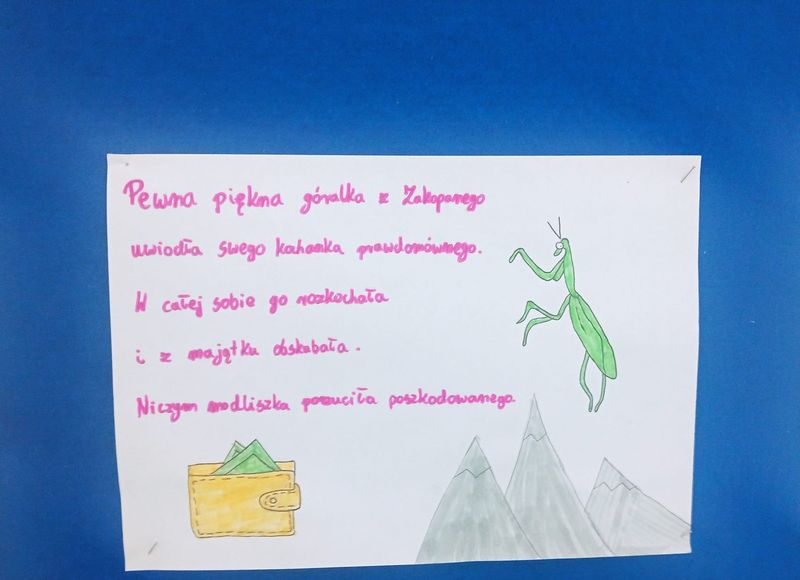 Pewna piękna góralka z Zakopanego
uwiodła swego kochanka prawdomównego.
W całej sobie go rozkochała
i z majątku obskubała.
Niczym modliszka porzuciła poszkodowanego